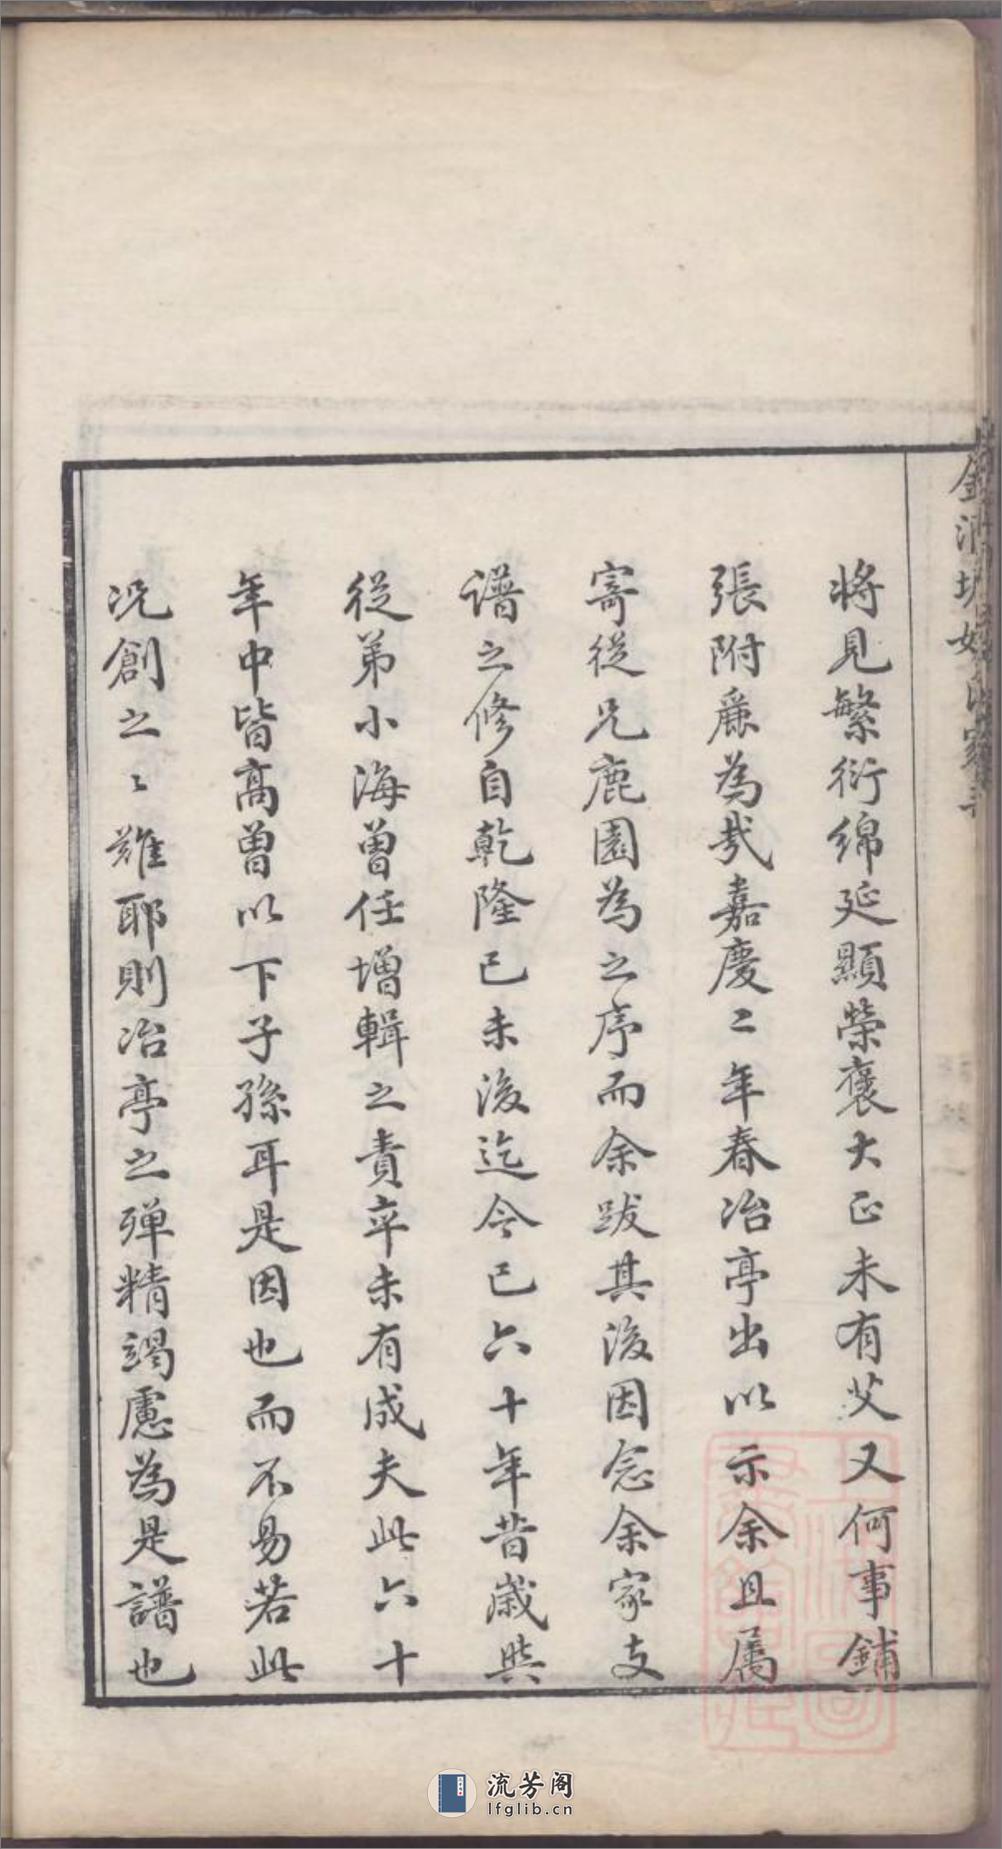 將見繁衍綿延顯榮褒大正未有艾又何事鋪
張附麗為哉嘉慶二年春冶亭出以示余且属
寄從兄鹿園為之序而余跋其後因念余家支
譜之修自乾隆己未後迄今已六十年昔歲與
從弟小海曾任增輯之責卒未有成夫此六十
年中皆高曾以下子孫耳是因也而不易若此
况創之〻難耶則冶亭之殫精竭慮為是譜也
流芳阁
lfglib.cn